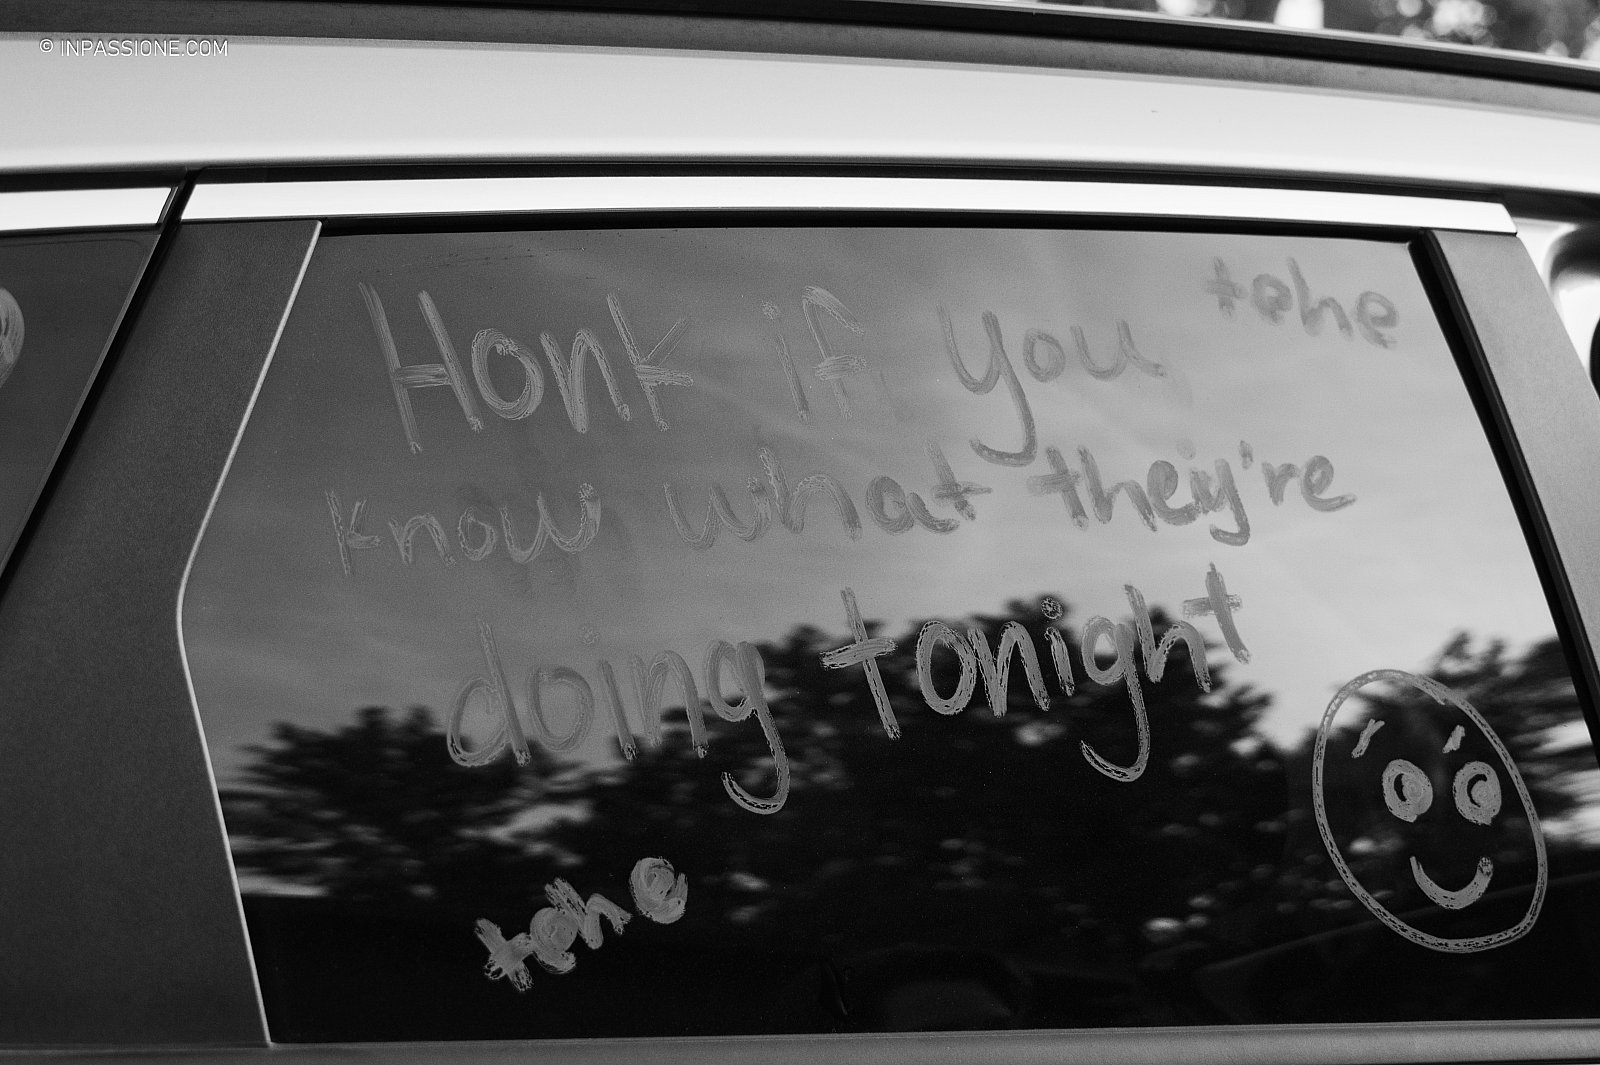 © INPASSIONE.COM
tehe
Honk if you
know what they're
doing tonight
tehe